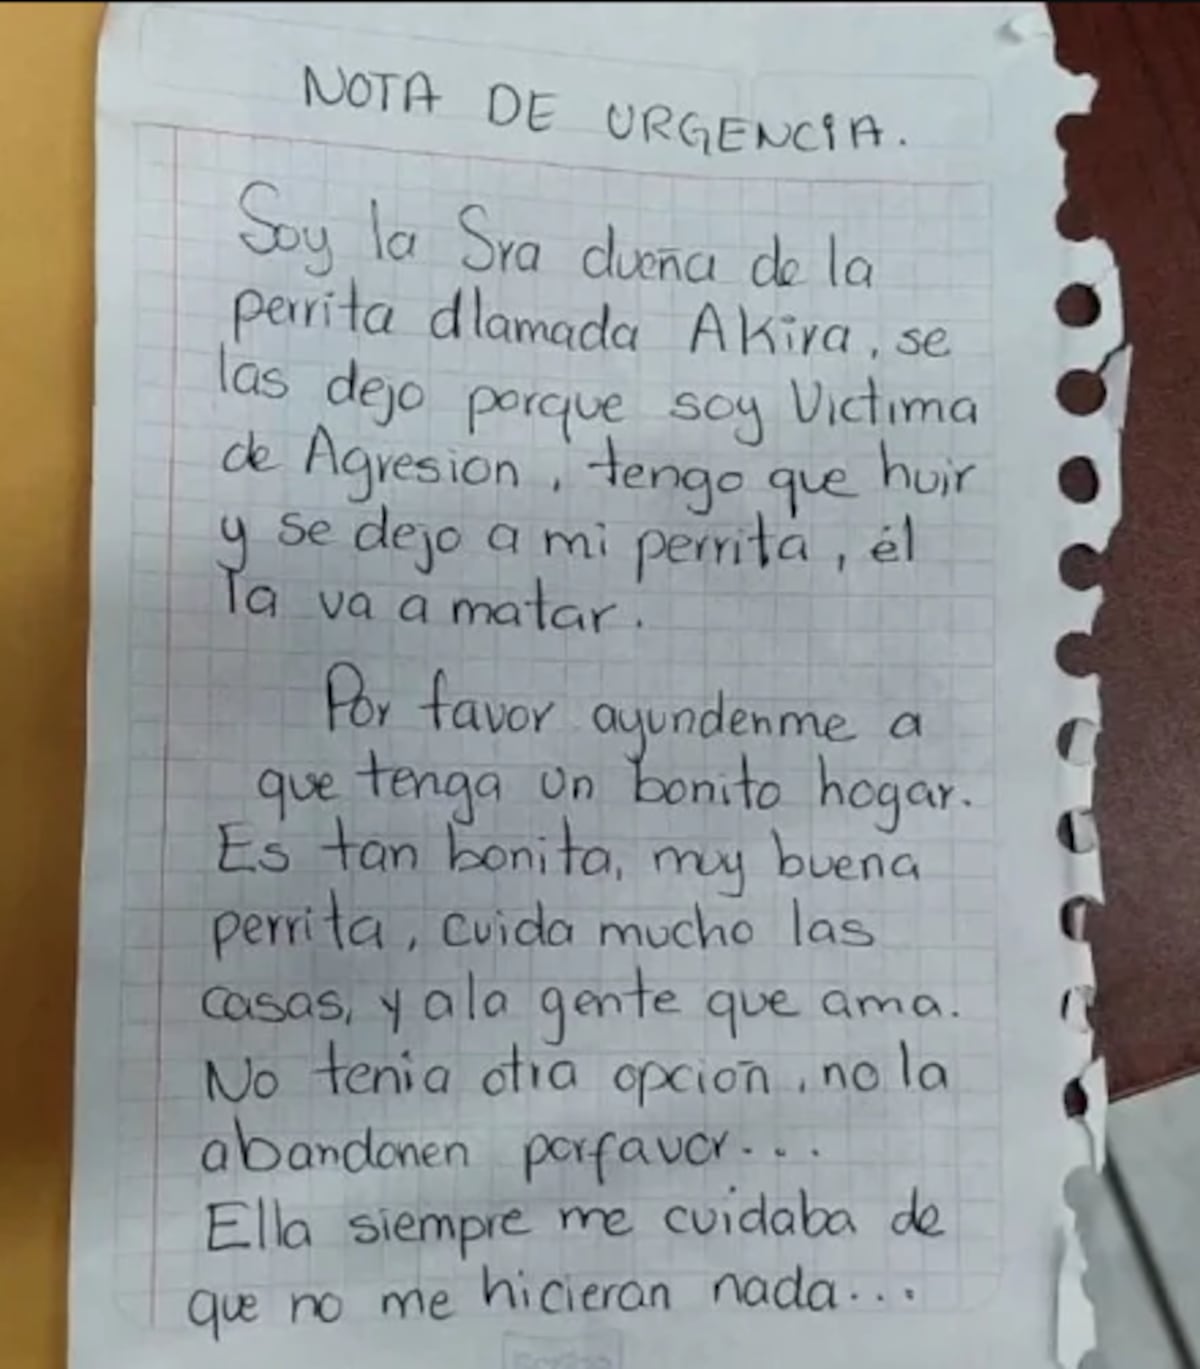 NOTA DE URGENCIA.
Soy la Sra dueña de la
perrita dlamada Akira, se
las dejo porque soy Victima
de Agresion, tengo que huir
y se dejo a mi perrita, él
la va a matar.
Por favor ayundenme a
que tenga un bonito hogar.
Es tan bonita, muy buena
perrita, cuida mucho las
casas, y ala gente que ama.
No tenia otra opcioñ, no la
abandonen porfavor...
Ella siempre me cuidaba de
que no me hicieran nada...